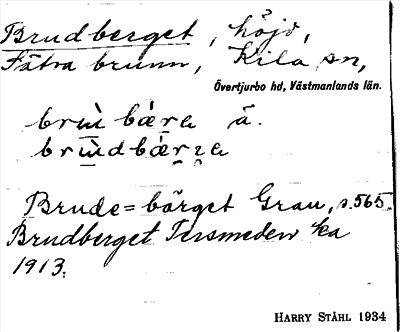 Brudberget, höjd,
Sätra brunn, Kila sn,
Övertjurbo hd, Västmanlands län.
brù̱ bǽr̯e ä.
brù̱dbǽr̯ɂe
Brude=bärget Grau, s. 565.
Brudberget Tersmeden ka
1913.
HARRY STÅHL 1934